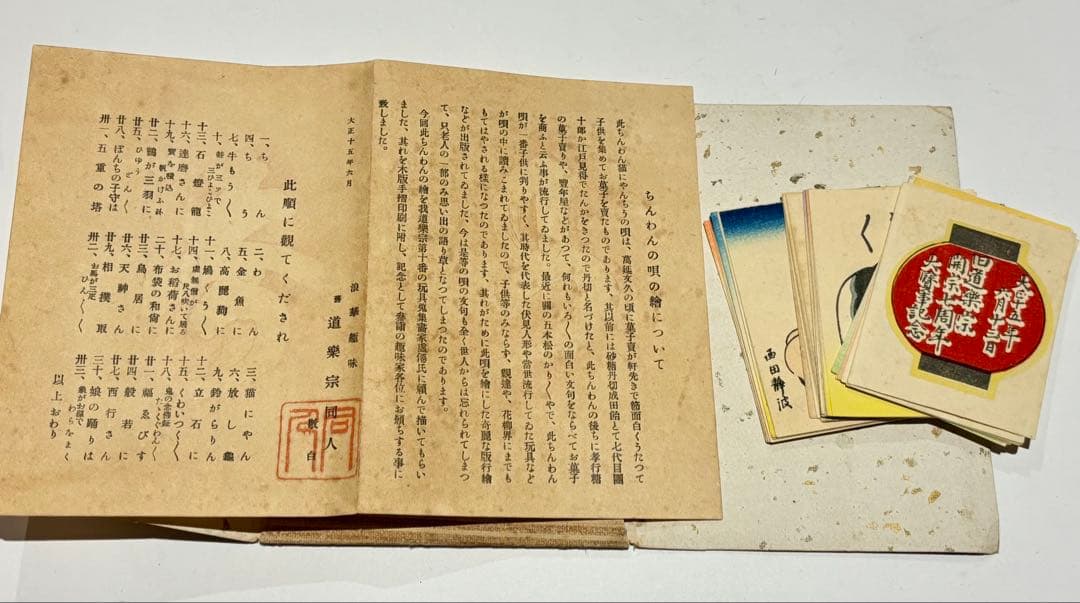 ちんわんの唄の繪について
此ちんわん猫にやんちうの唄は、萬延文久の頃に菓子賣が軒先きで節面白くうたつて
子供を集めてお菓子を賣たものであります、其以前には砂糖丹切成田飴とて七代目團
十郎が江戸見得でたんかをきつたので丹切と名づけたと、此ちんわんの後ちに孝行糖
の菓子賣りや、豐年屋などがあつて、何れもいろ〱の面白い文句をならべてお菓子
を商ふと云ふ事が流行してゐました。最近に關の五本松のかり〱やで、此ちんわん
唄が一番子供に判りやすく、其時代を代表した伏見人形や當世流行してゐた玩具など
が唄の中に讀みこまれてゐましたので、子供等のみならず、觀達や、花柳界にまでも
もてはやされる樣になつたのであります、其れがために此唄を繪にした奇麗な版行繪
などが出版されてゐました、今は是等の唄の文句も全く世人からは忘れられてしまつ
て、只老人の一部のみ思い出の語り草となつてしまつたのであります。
今回此ちんわんの繪を我道樂宗第十番の玩具蒐集畵家處僊氏に願んで描いてもらい
ました、其れを木版手摺印刷に附し、記念として參詣の趣味家各位にお頒ちする事に
致しました。
大正十五年六月
浪華趣味
道樂宗同人
敬白
此順に觀てくだされ
一、ちん
二、わん
三、猫にやん
四、ちう
五、金魚に
六、放し龜
七、牛もう〱
八、高麗駒に
九、鈴がらりん
十、蛙が三ツでひよこ〱
十一、鳩ぐう〱
十二、立石に
十三、石燈籠
十四、虚無僧が尺八吹いて居る
十五、くわいつく〱
十六、達磨さんに
十七、お稻荷さんに
十八、鬼の念佛鉦たゝぐわん〱
十九、寶を積込帆かけふね
二十、布袋の和尚
廿一、福ゑびす
廿二、鴨が三羽に、
廿三、鳥居に
廿四、般若に
廿五、ひゆうどん〱
廿六、天神さん
廿七、西行さんに
廿八、ぼんちの子守は
廿九、相撲取
三十、娘の踊りは
卅一、五重の塔
卅二、お馬が三疋ひん〱
以上おわり
西田靜波
く
大正十五年
六月十三日
道樂宗
開宗七周年
大寶書記念